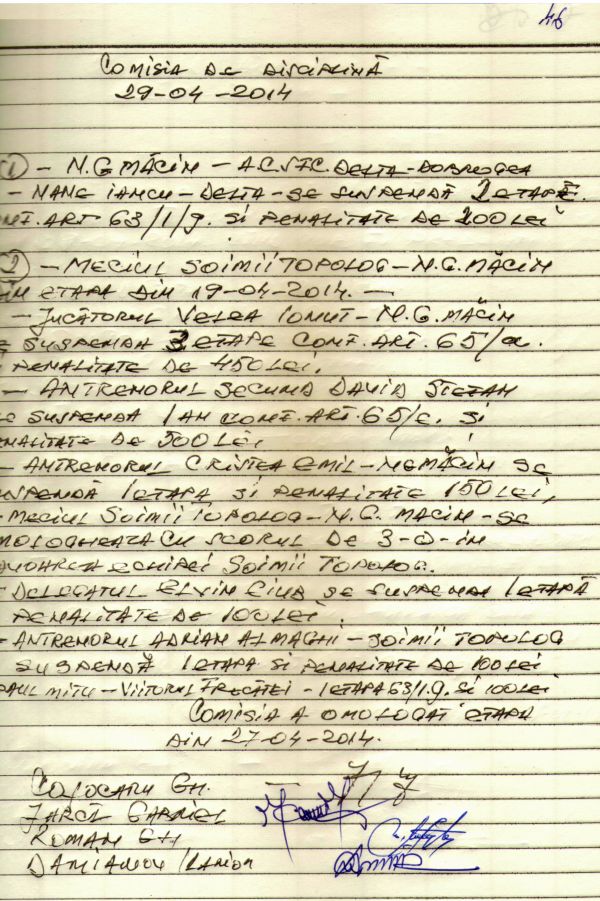 46
COMISIA DE DISCIPLINĂ
29-04-2014
1 - N.G MĂCIN - A.C.S.F.C. DELTA-DOBROGEA
- NANE IANCU - DELTA - SE SUSPENDĂ 2 ETAPE.
NF. ART 63/1/g. SI PENALITATE DE 200 LEI
2 - MECIUL SOIMII TOPOLOG - N.G. MĂCIN
IN ETAPA DIN 19-04-2014. -
- JUCĂTORUL VELEA IONUT - N.G. MĂCIN
SUSPENDA 3 ETAPE CONF. ART. 65/a.
PENALITATE DE 450 LEI.
- ANTRENORUL SECUND DAVID STEFAN
SE SUSPENDA 1 AN CONF. ART. 65/c. SI
NALITATE DE 500 LEI,
- ANTRENORUL CRISTEA EMIL - SE
SPENDĂ 1 ETAPA SI PENALITATE 150 LEI,
- MECIUL SOIMII TOPOLOG - N.G. MACIN - SE
MOLOGHEAZA CU SCORUL DE 3-0 - IN
AVOAREA ECHIPEI SOIMII TOPOLOG.
- DELEGATUL SE SUSPENDA 1 ETAPĂ
PENALITATE DE 100 LEI.
- ANTRENORUL ADRIAN ALMAGHI - SOIMII TOPOLOG
SUSPENDĂ 1 ETAPA SI PENALITATE DE 100 LEI
MITU - VIITORUL FRECATEI - 1 ETAPA 63/1.g. SI 100 LEI
COMISIA A OMOLOGAT ETAPA
DIN 27-04-2014.
COJOCARU GH.
GABRIEL
ROMAN GH
DAMIANOV